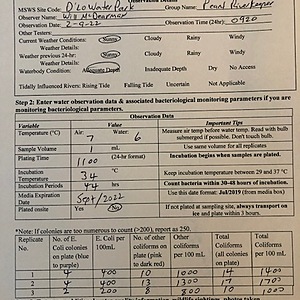 MSWS Site Code: D'Lo Water Park Group Name: Pearl Riverkeeper
Observer Name: Will McDearman
Observation Date: 2-8-22 Observation Time (24hr): 0920
Other Testers:
Current Weather Conditions: Sunny Cloudy Rainy Windy
Weather Details:
Previous weather conditions: Sunny Cloudy Rainy Windy
Weather Details:
Waterbody Condition: Adequate Depth Inadequate Depth Dry No Access
Tidally Influenced Rivers: Rising Tide Falling Tide Uncertain Not Applicable
Step 2: Enter water observation data & associated bacteriological monitoring parameters if you are
monitoring bacteriological parameters.
Observation Data
Variable Value Important Tips
Temperature (°C) Air: 7 Water: 6 Measure air temp before water temp. Read with bulb
submerged if possible. Don't touch bulb.
Sample Volume 1 mL Use same volume for all replicates
Plating Time 1100 (24-hr format) Incubation begins when samples are plated.
Incubation
Temperature 34 °C Keep incubation temperature between 29 and 37 °C
Incubation Periods 44 hrs Count bacteria within 30-48 hours of incubation.
Media Expiration
Date Sept/2022 Use this date format: Jul/2019 (from media box)
Plated onsite Yes No If not plated at sampling site, always transport on
ice and plate within 3 hours.
*Note: If colonies are too numerous to count (>200), report as 250.
Replicate No. No. of E. Coli colonies on plate (blue to purple) E. Coli per 100mL No. of other coliforms on plate (pink to dark red) Other coliforms per 100 mL Total Coliforms (all colonies on plate) Total Coliforms per 100 mL
1 4 400 10 1000 14 1400
2 4 400 13 1300 17 1700
3 2 200 8 800 10 1000